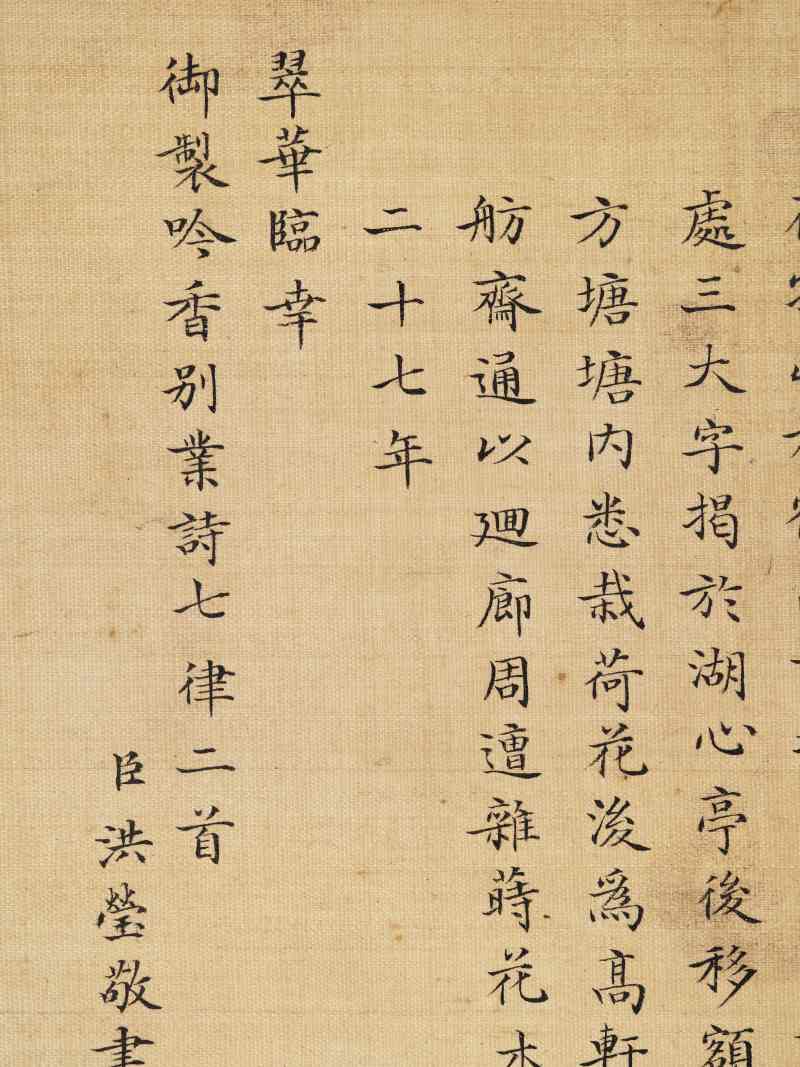 處三大字揭於湖心亭後移額
方塘塘内悉栽荷花浚為髙軒
舫齋通以廻廊周遭雜蒔花木
二十七年
翠華臨幸
御製吟香别業詩七律二首
臣洪瑩敬書